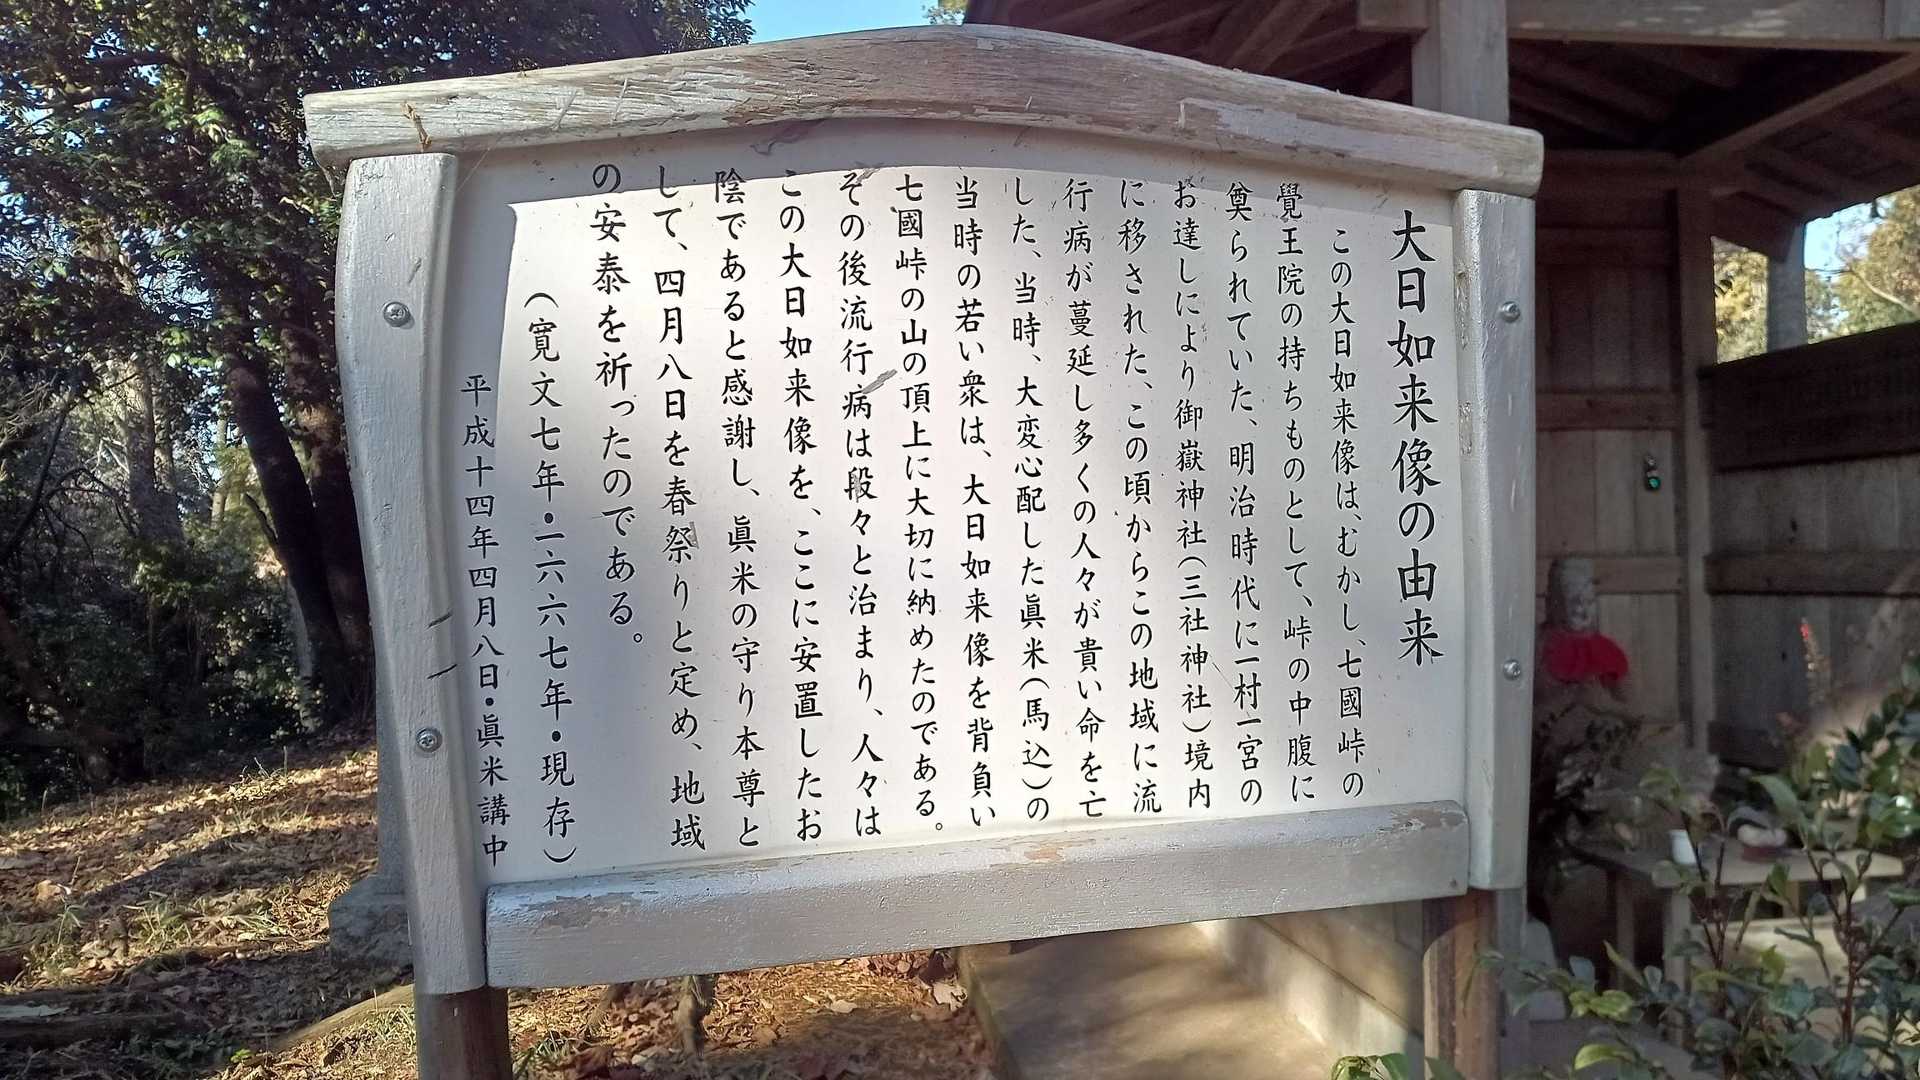 大日如来像の由来
この大日如来像は、むかし、七國峠の
覺王院の持ちものとして、峠の中腹に
奠られていた、明治時代に一村一宮の
お達しにより御嶽神社（三社神社）境内
に移された、この頃からこの地域に流
行病が蔓延し多くの人々が貴い命を亡
した、当時、大変心配した眞米（馬込）の
当時の若い衆は、大日如来像を背負い
七國峠の山の頂上に大切に納めたのである。
その後流行病は段々と治まり、人々は
この大日如来像を、ここに安置したお
陰であると感謝し、眞米の守り本尊と
して、四月八日を春祭りと定め、地域
の安泰を祈ったのである。
（寛文七年・一六六七年・現存）
平成十四年四月八日・眞米講中